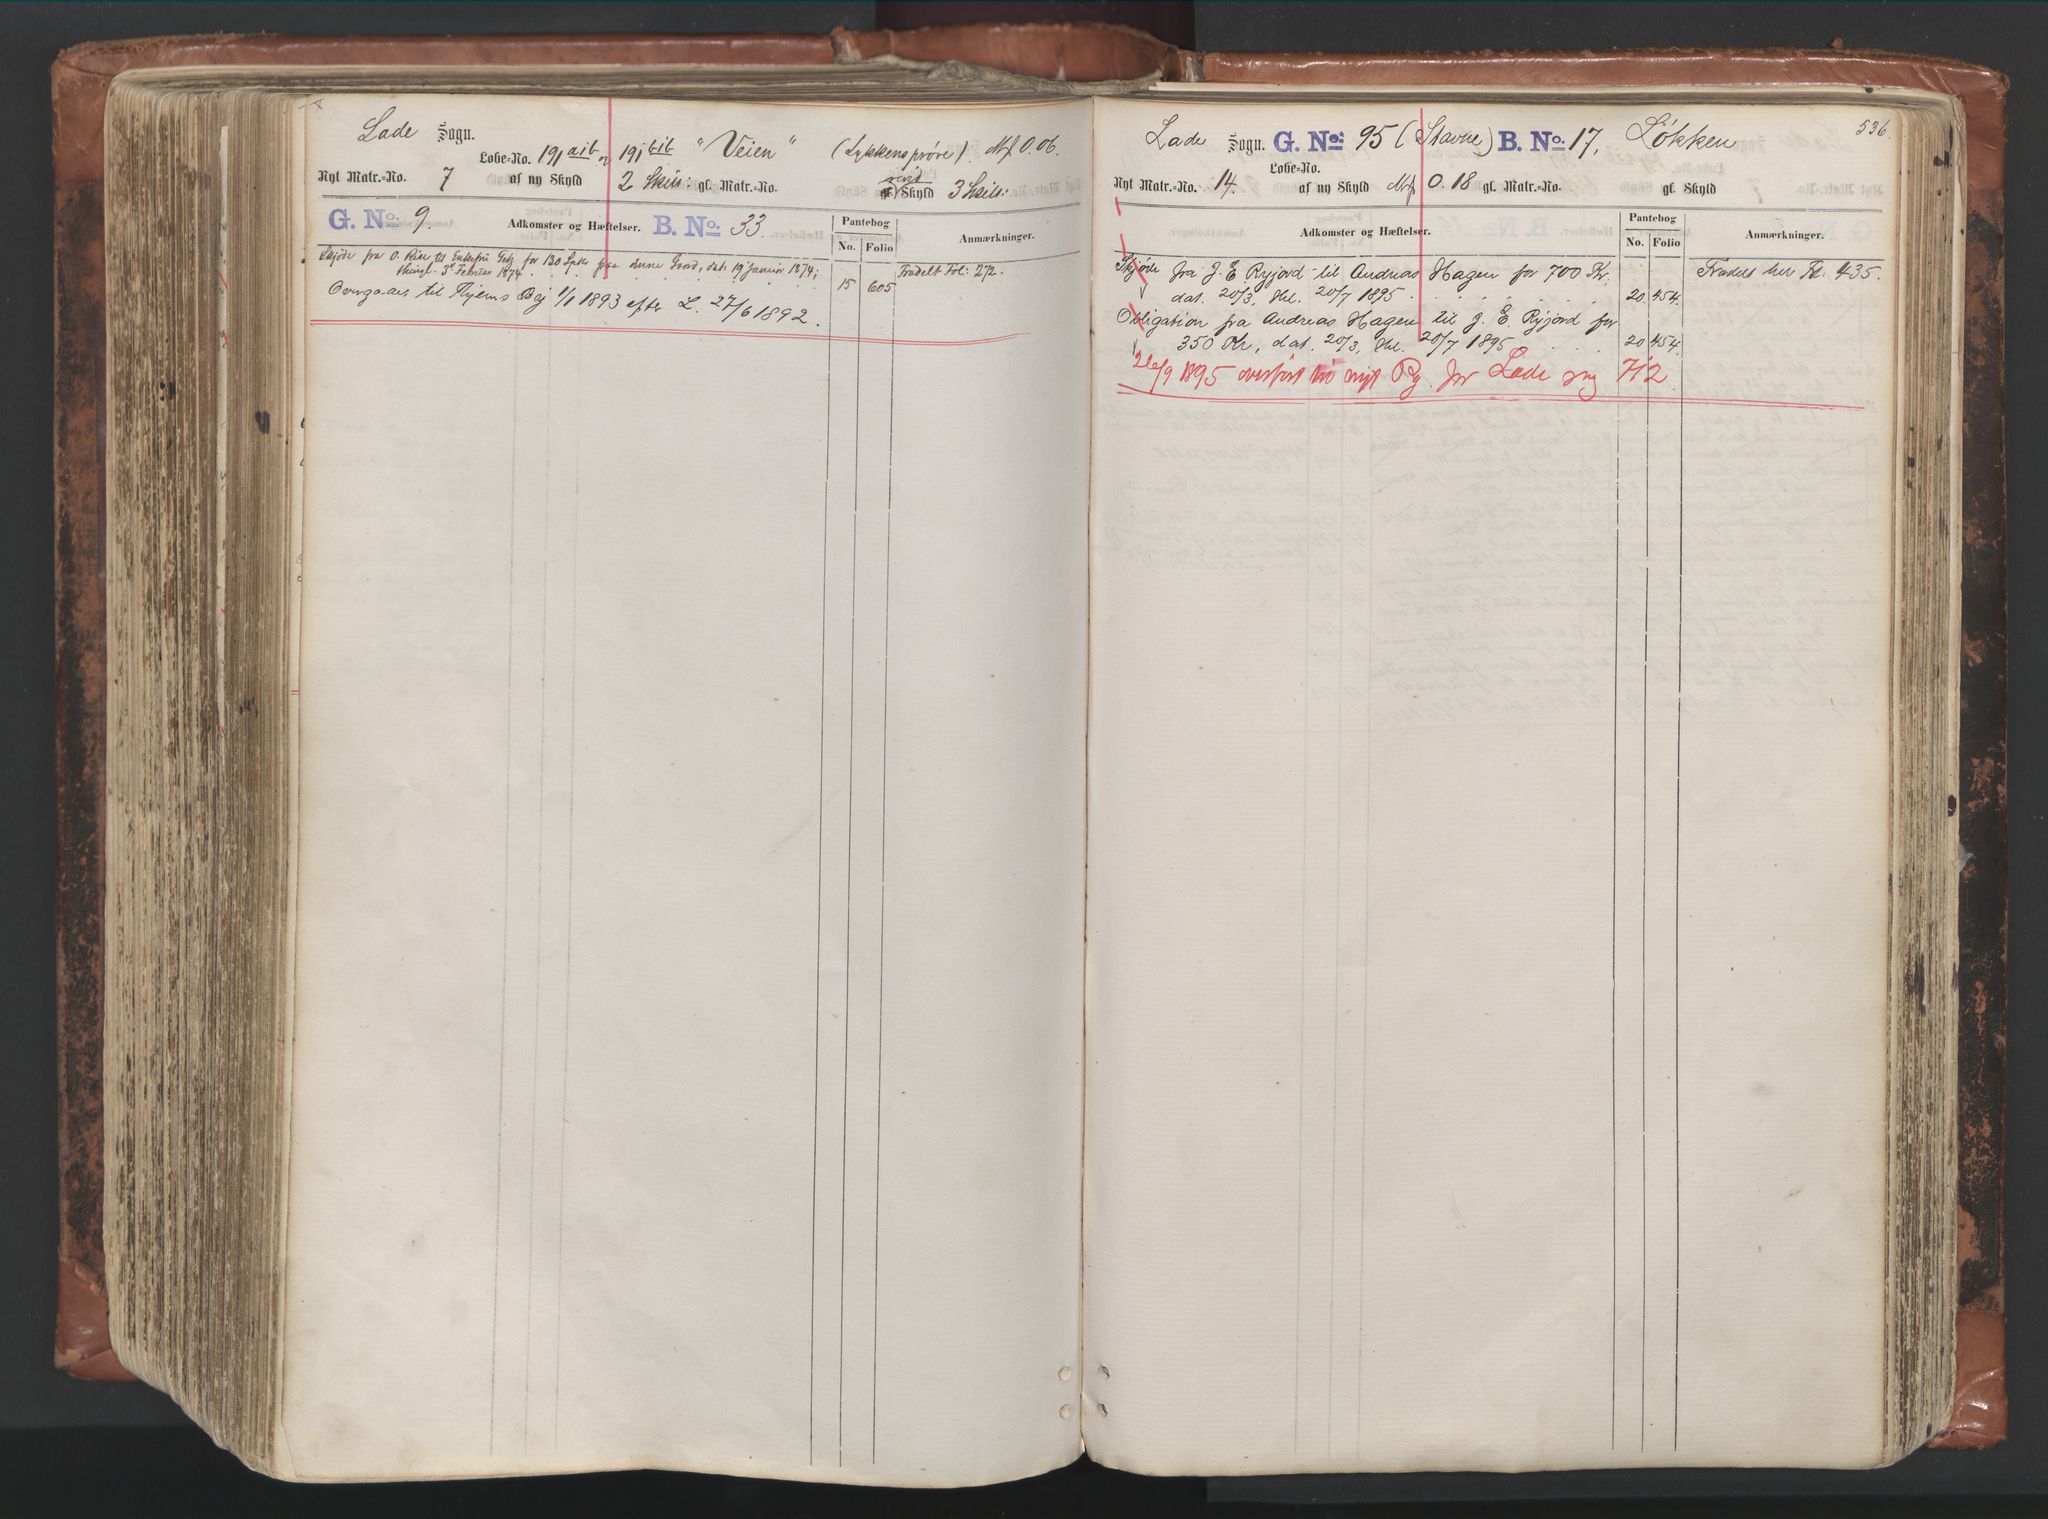 Lade Sogn.
Løbe-No. 191 aib og 191 bib "Veien" (Lykkensprøve). Mk 0.06.
Nyt Matr.-No. 7 af ny Skyld 2 Skill: gl. Matr.-No. revid Skyld 3 Skill:
G. No. 9. Adkomster og Hæftelser. B. No. 33. Pantebog
No. Folio Anmærkninger.
Skjøde fra O. Riise til Enkefru Getz for 130 Spdlr paa denne Gaard, dat: 19 Januar 1874;
thingl. 3e Februar 1874 15 605 Fradelt Fol: 272.
Overgaaer til Thjems Rg 1/1 1893 efter L. 27/6 1892.
536.
Lade Sogn. G. No. 95 (Stavne) B. No. 17, Løkken
Løbe-No.
Nyt Matr.-No. 14. af ny Skyld Mk 0.18 gl. Matr.-No. gl. Skyld
Adkomster og Hæftelser. Pantebog
No. Folio Anmærkninger.
Skjøde fra J. E. Ryjord til Andreas Hagen for 700 Kr. Fradelt her Fol: 435.
dat. 20/3, thl. 20/7 1895 20 454.
Obligation fra Andreas Hagen til J. E. Ryjord for
350 Kr, dat. 20/3, thl. 20/7 1895 20 454.
/9 1895 overført til nyt Rg. for Lade sog 712